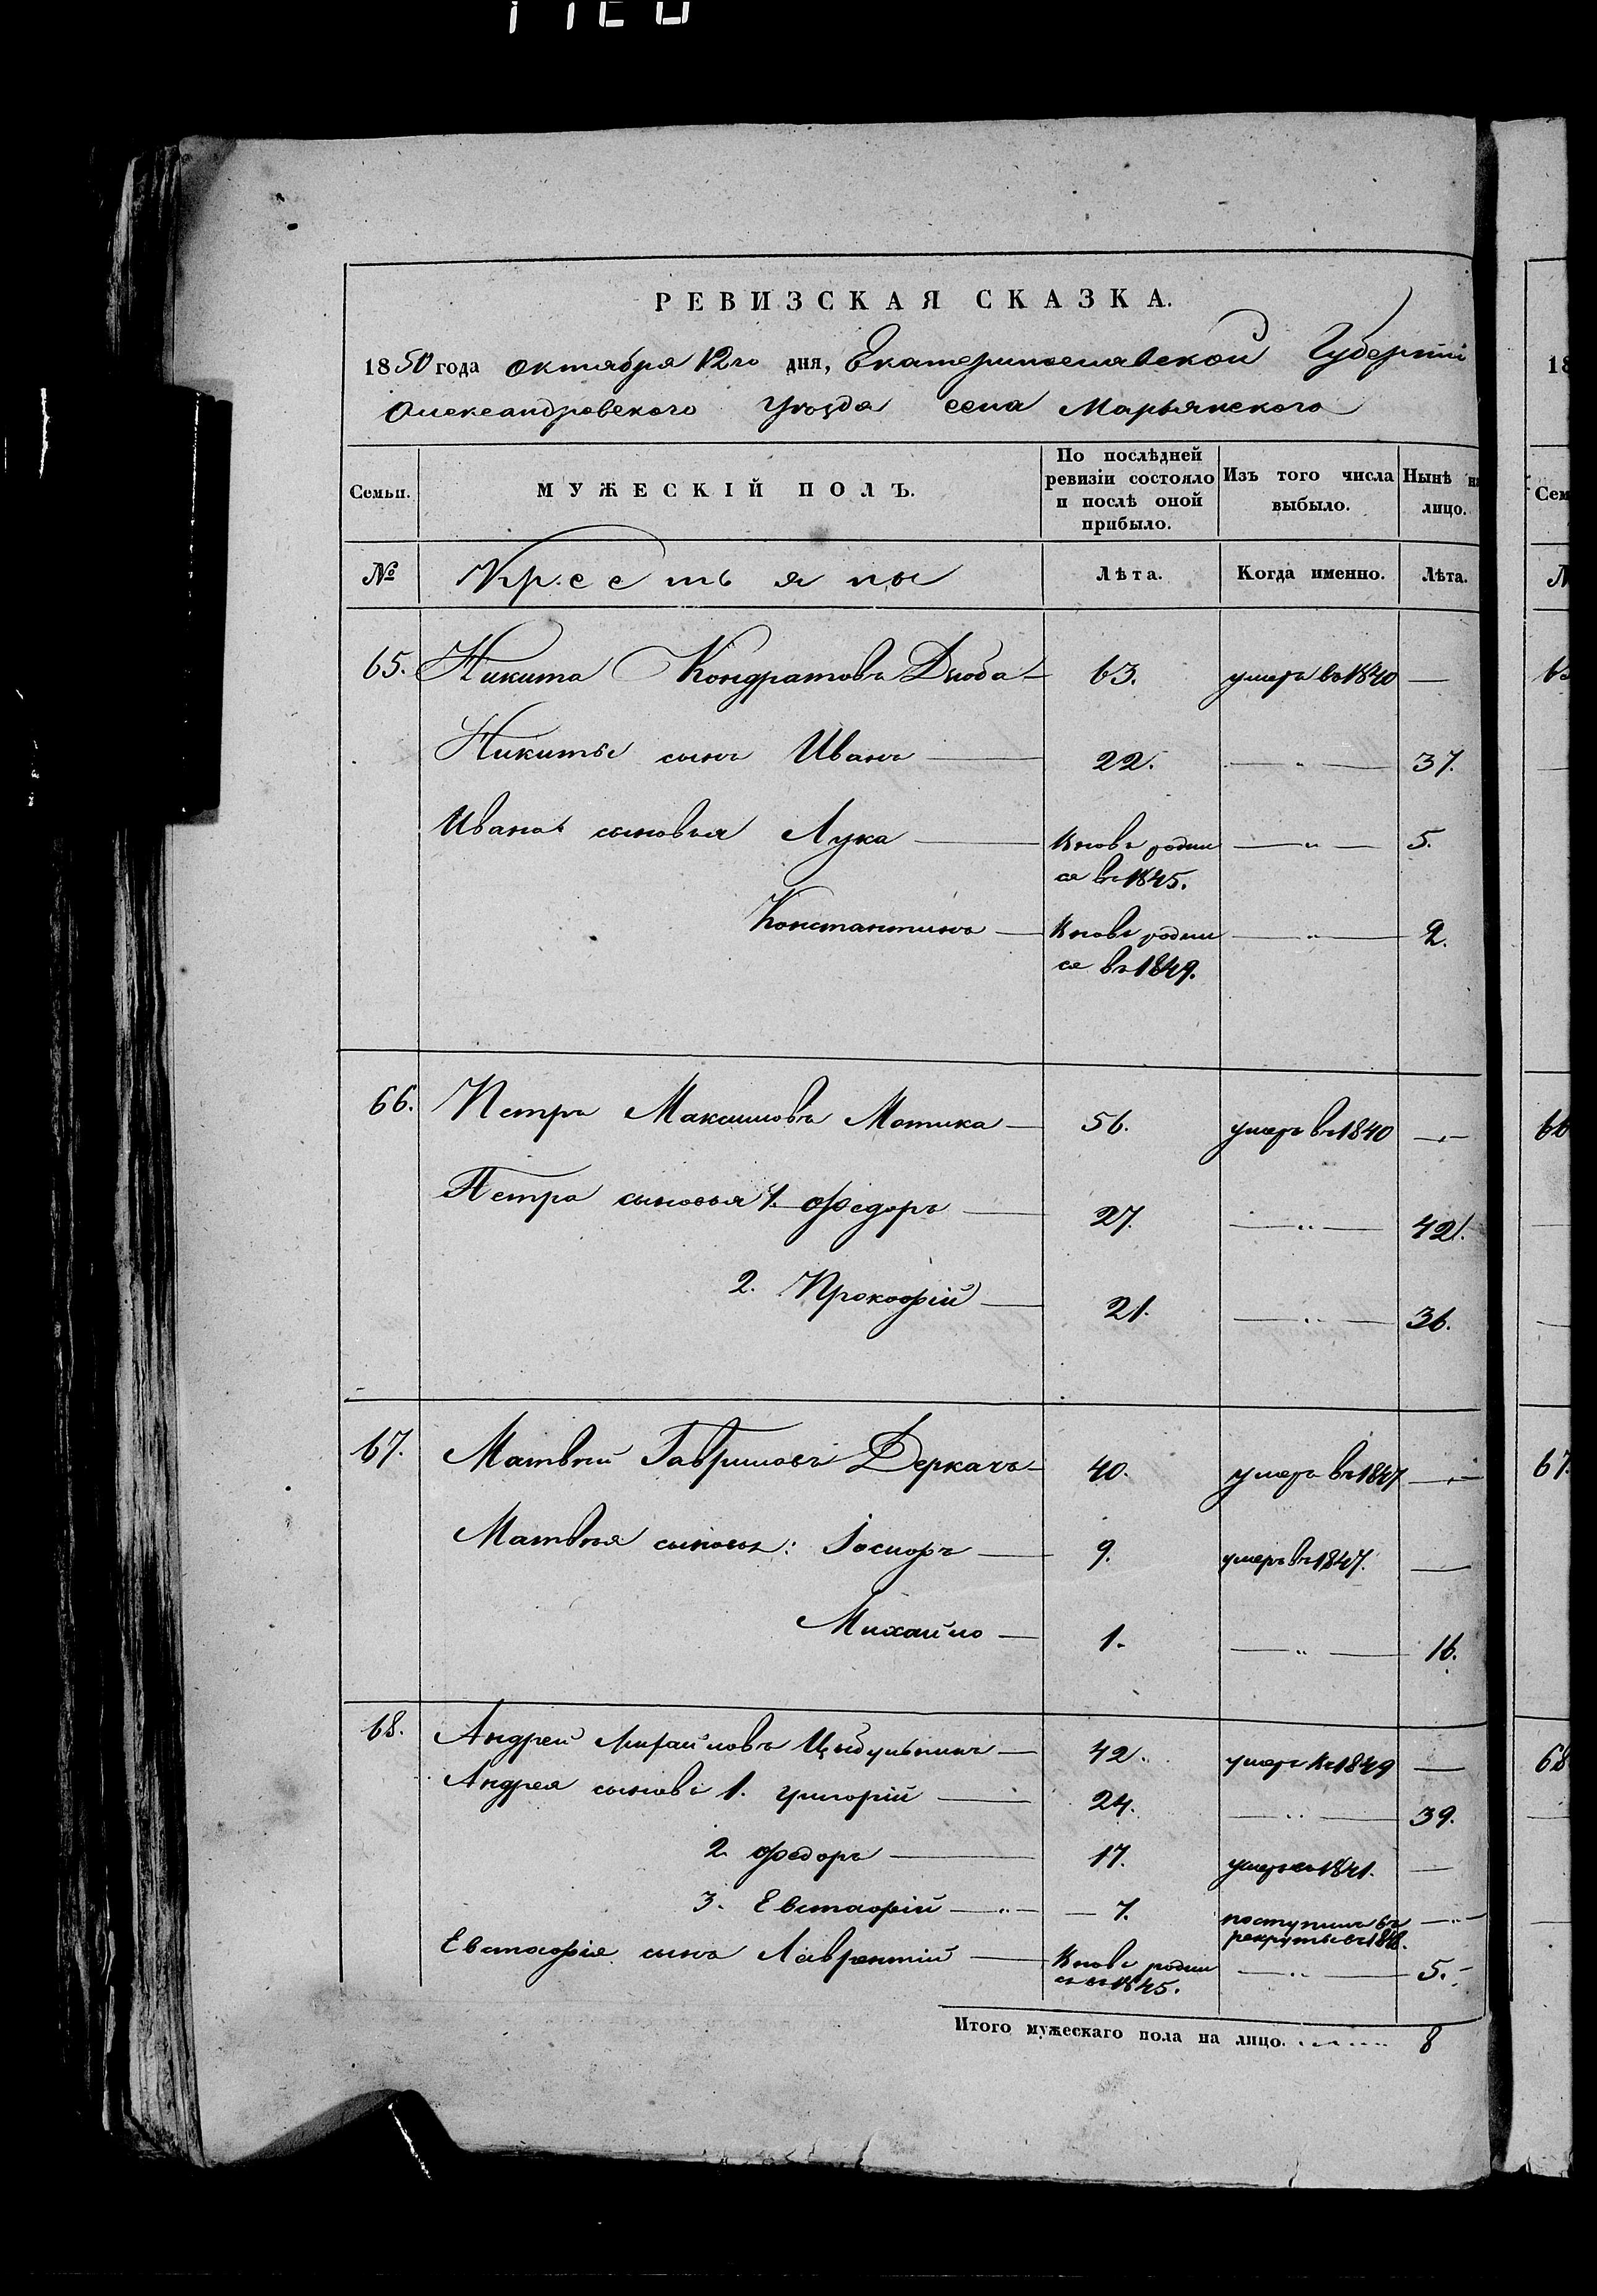 РЕВИЗСКАЯ СКАЗКА.
1850 года октября 12го дня, Екатеринославской Губерніи
Александровского Уѣзда села Марьянского
Семьи.
МУЖЕСКІЙ ПОЛЪ.
По послѣдней ревизіи состояло и послѣ оной прибыло.
Изъ того числа выбыло.
Нынѣ на лицо.
№
Крестьяны
Лѣта.
Когда именно.
Лѣта.
65. Никита Кондратовъ Дзюба 63. умеръ въ 1840 —
Никиты сынъ Иванъ 22. — " — 37.
Ивана сыновья Лука вновь родил — " — 5.
ся въ 1845.
Константинъ вновь родил — " — 2.
ся въ 1849.
66. Петръ Максимовъ Мотика 56. умеръ въ 1840 —
Петра сыновья 1. Федоръ 27. — " — 42.
2. Прокофій 21. — " — 36.
67. Матвѣй Гавриловъ Деркачъ 40. умеръ въ 1847 —
Матвѣя сыновья: 9. умеръ въ 1847. —
Михайло 1. — " — 16.
68. Андрей Михайловъ Цыбульникъ 42. умеръ въ 1849 —
Андрея сыновья 1. Григорій 24. — " — 39.
2. Федоръ 17. умеръ въ 1841. —
3. Евстафій 7. поступилъ въ — " —
рекруты въ
Евстафія сынъ Лаврентій вновь родил — " — 5.
ся въ 1845.
Итого мужескаго пола на лицо. 8